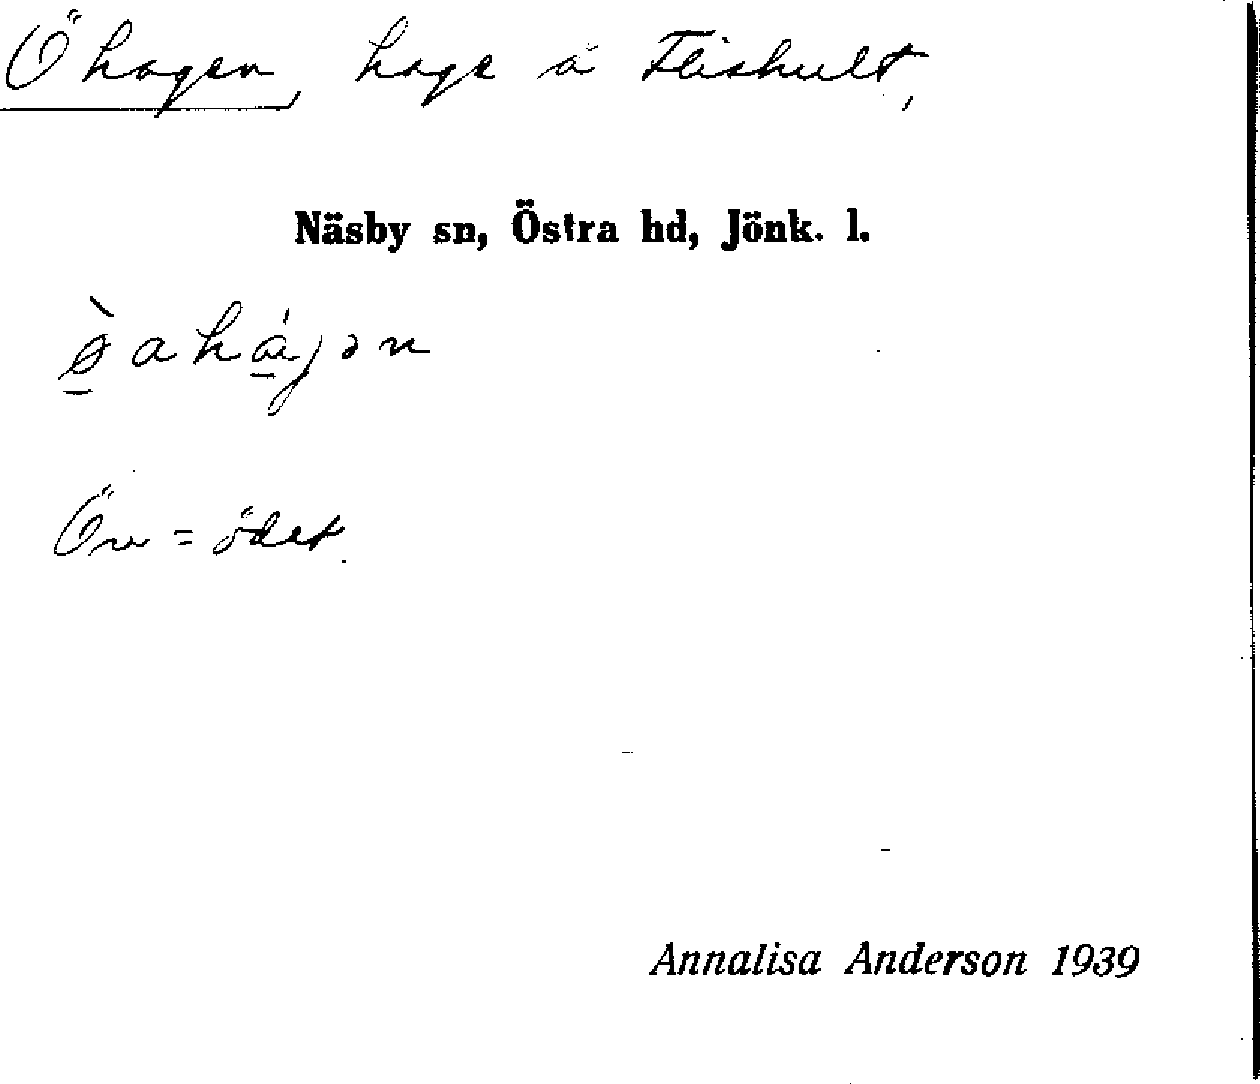 Öhagen, hage å Fliskult,
Näsby sn, Östra hd, Jönk. l.
ø̀ahá̱jən
= ödet.
Annalisa Anderson 1939